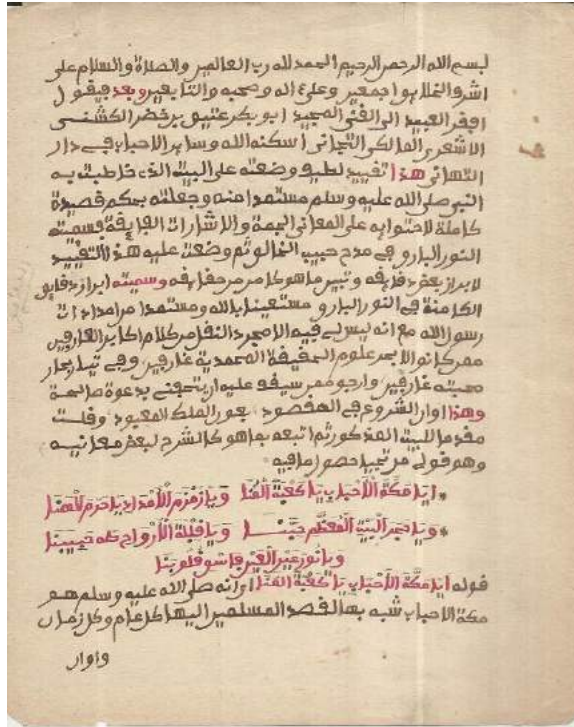 بسم الله الرحمن الرحيم الحمد لله رب العالمين والصلاة والسلام على
اشرف الخلايق اجمعين وعلى اله وصحبه والتابعين وبعد فيقول
افقر العبيد الى الغني المجيد ابو بكر عتيق بن خضر الكشنى
الاشعرى المالكى التجانى اسكنه الله وساير الاحباب فى دار
التهانى هذا تقييد لطيف وضعته على البيت الذى خاطبت به
النبى صلى الله عليه وسلم مستمدا منه وجعلته بحكم قصيدة
كاملة لاحتوايه على المعانى الجمة والاشارات الفايقة فسميته
النور البارق فى مدح حبيب الخالق ثم وضعت عليه هذا التقييد
لابراز بعض دقايقه وتبيين ما هو كامن من حقايقه وسميته ابراز دقايق
الكامنة فى النور البارق مستعينا بالله ومستمدا من امدادات
رسول الله مع انه ليس لى فيه الا مجرد النقل من كلام اكابر العارفين
ممن كانوا لابحر علوم الحقيقة المحمدية غارفين وفى تيار بحار
محبته غارقين وارجو ممن سيقف عليه ان يتحفنى بدعوة صالحة
وهذا اوان الشروع فى المقصود بعون الملك المعبود وقلت
مقدما للبيت المذكور ثم اتبعه بما هو كالشرح لبعض معانيه
وهو قولى مرتجيا حصول ما فيه
ايا مكة الاحباب يا كعبة الهنا ويا زمزم الامداد يا حرم المنا
ويا خير البيت المعظم حبنا ويا قبلة الارواح طه حبيبنا
ويا نور عين الغير فاشف قلوبنا
قوله ايا مكة الاحباب يا كعبة الهنا اى انه صلى الله عليه وسلم هو
مكة الاحباب شبه بها لقصد المسلمين اليها كل عام وكل زمان
واوان